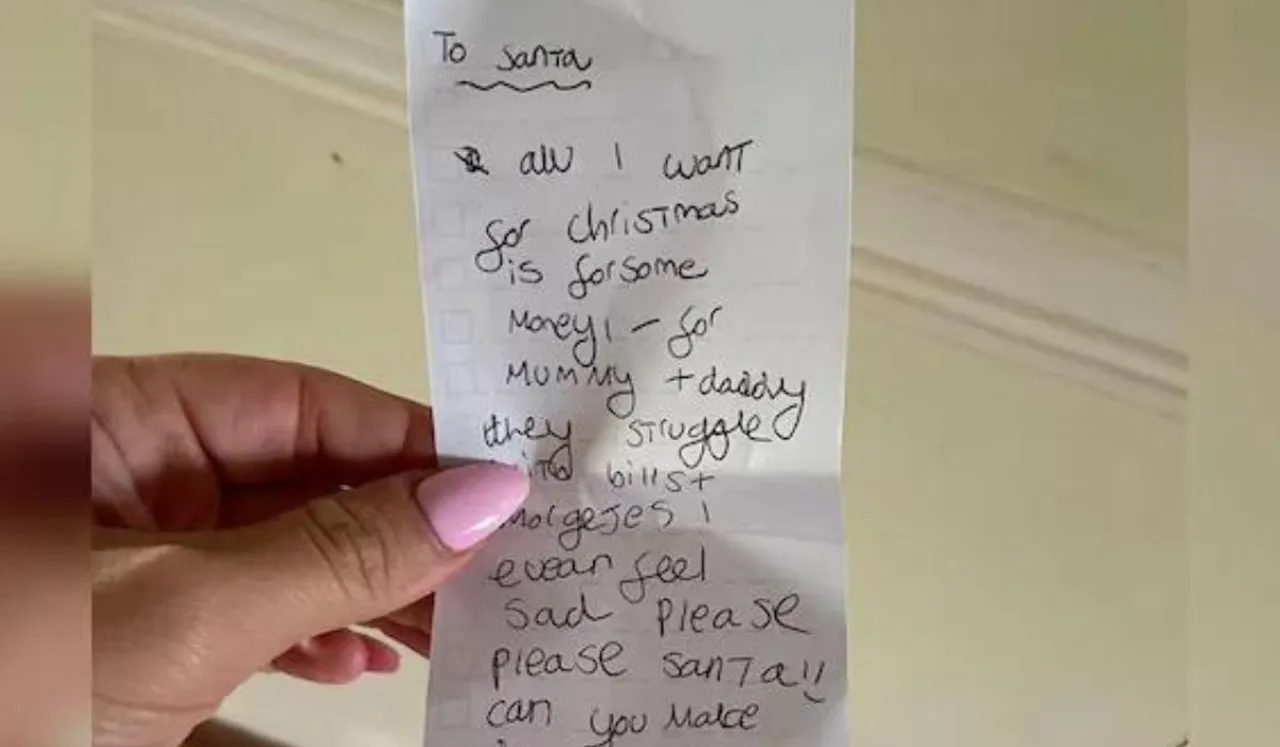 To Santa
all I want
for christmas
is forsome
Money, - for
MUMMY + daddy
they struggle
bills +
morgejes I
evean feel
sad please
please santa!!
can you Make